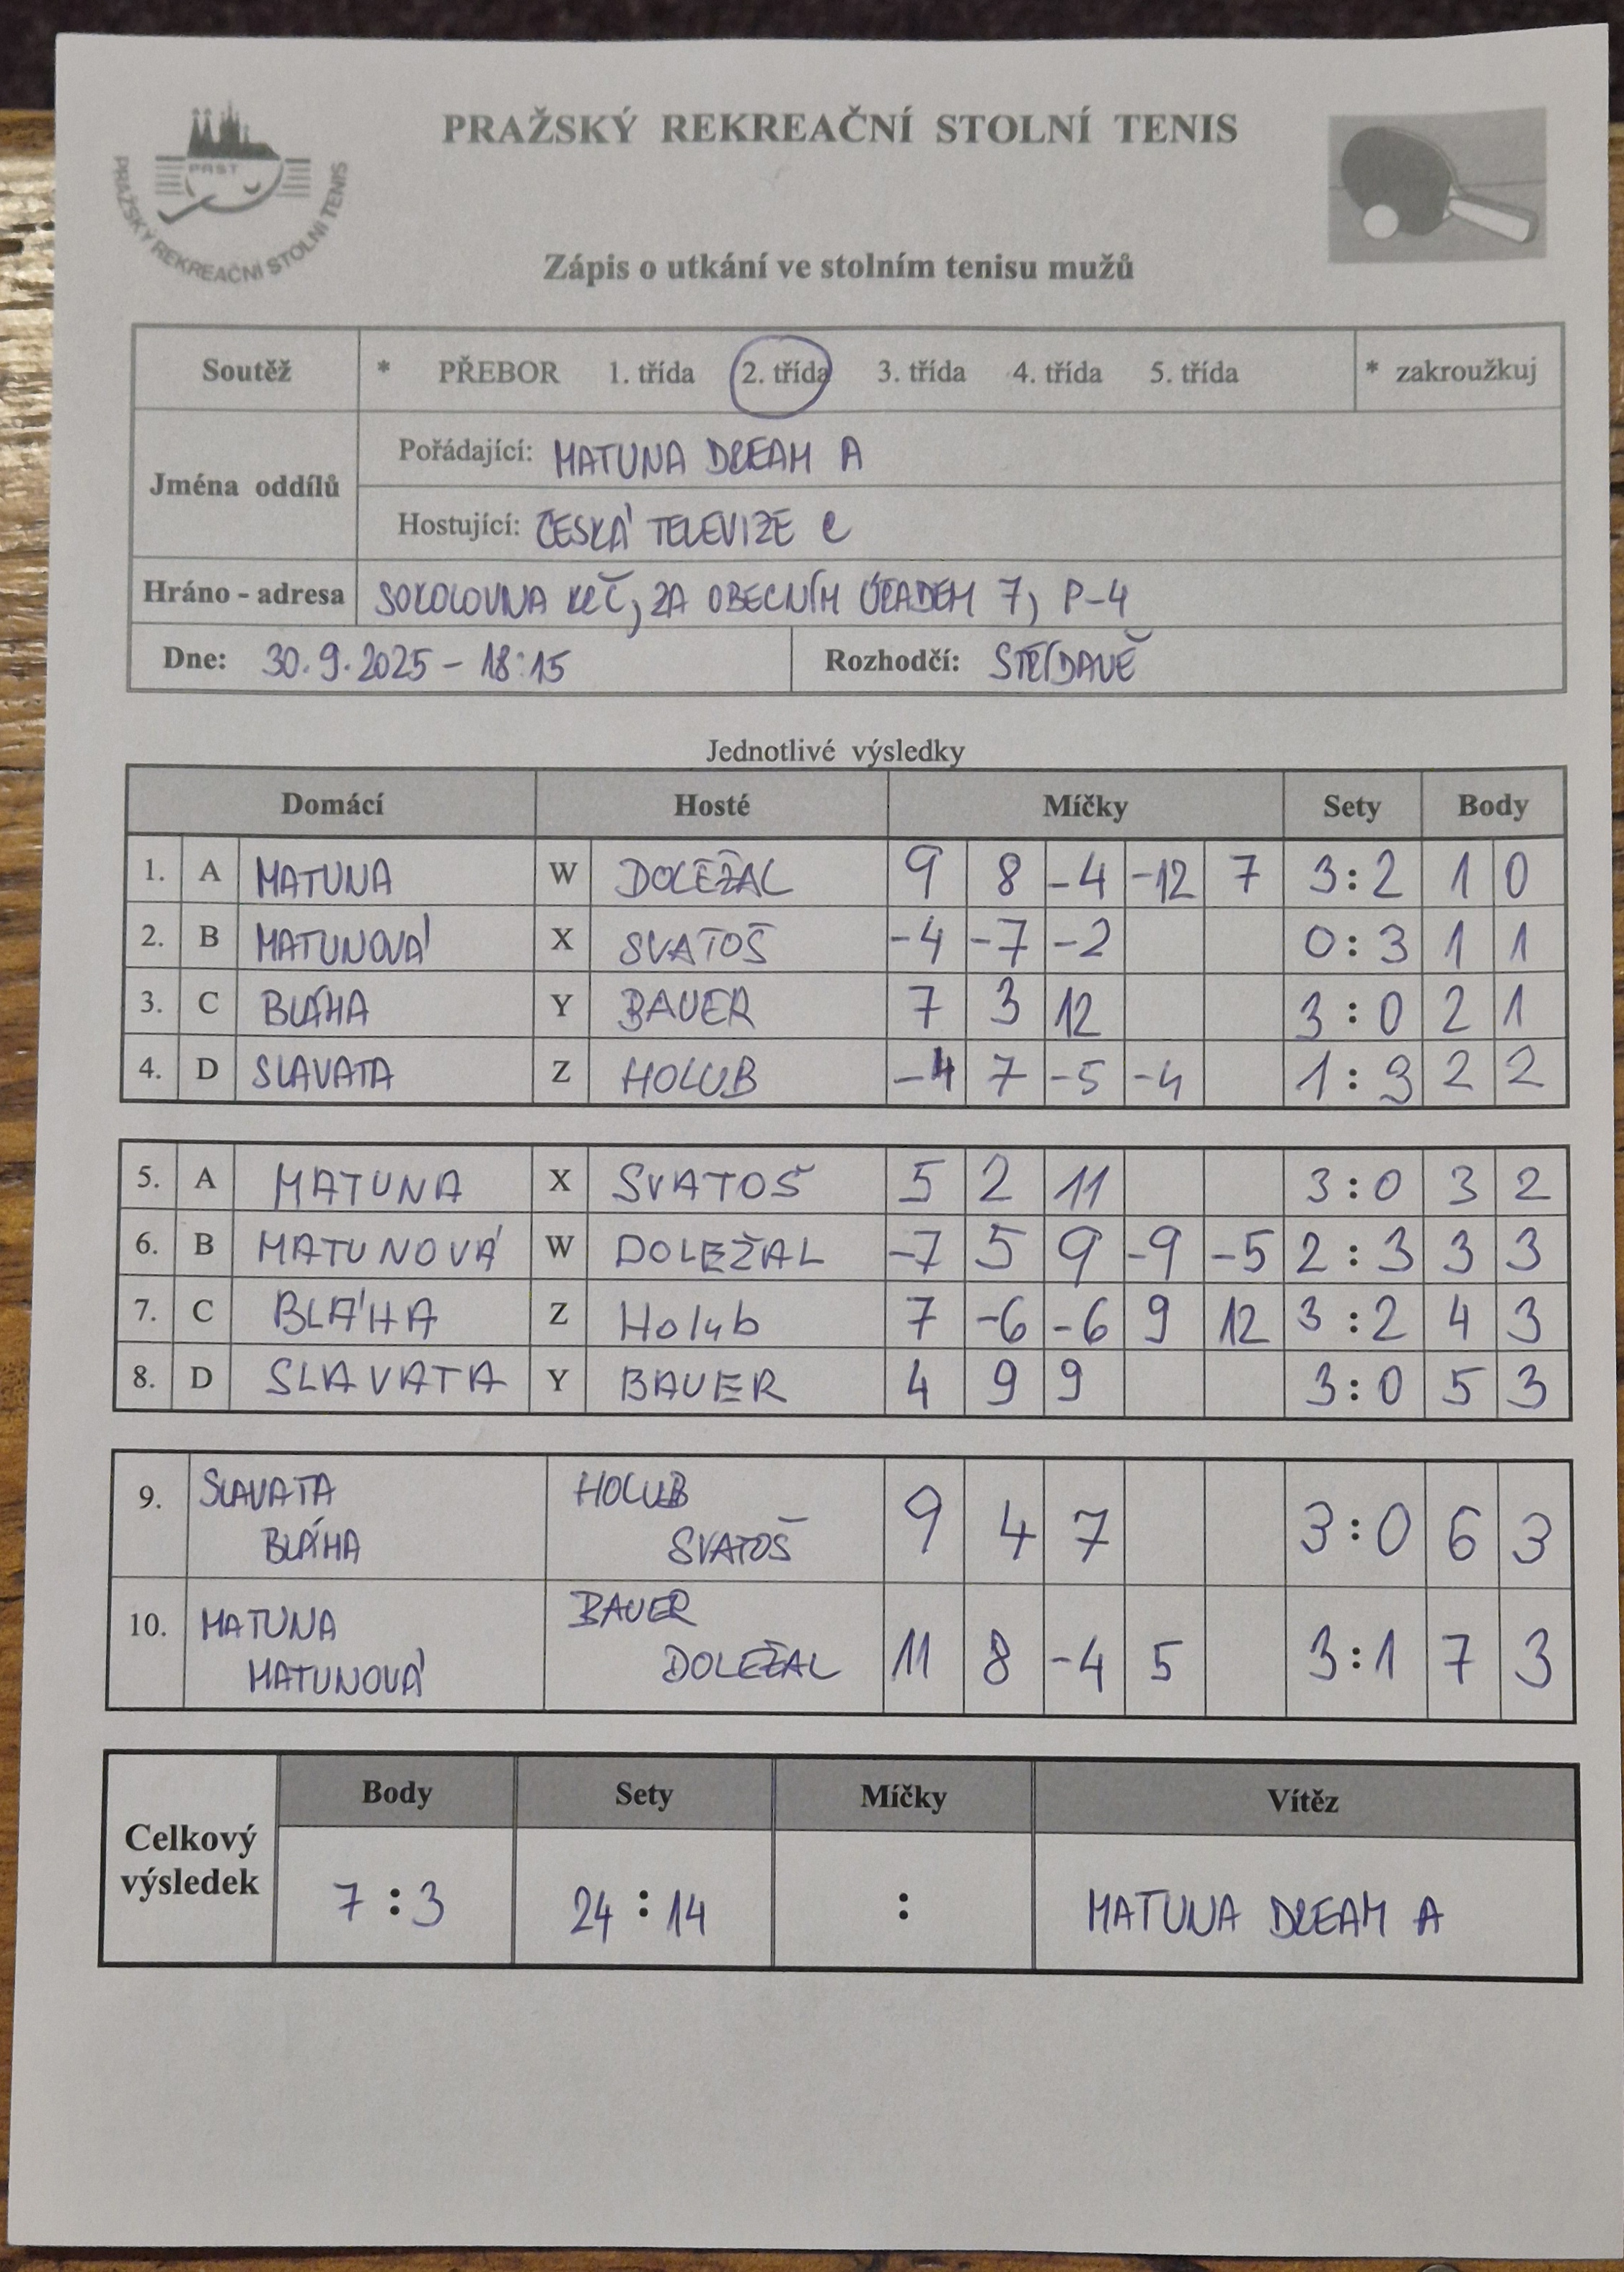 PRAŽSKÝ REKREAČNÍ STOLNÍ TENIS
PRST
PRAŽSKÝ REKREAČNÍ STOLNÍ TENIS
Zápis o utkání ve stolním tenisu mužů
Soutěž * PŘEBOR 1. třída 2. třída 3. třída 4. třída 5. třída * zakroužkuj
Jména oddílů
Pořádající: MATUNA DREAM A
Hostující: ČESKÁ TELEVIZE C
Hráno - adresa SOKOLOVNA KRČ, ZA OBECNÍM ÚŘADEM 7, P-4
Dne: 30.9.2025 - 18:15 Rozhodčí: STŘÍDAVĚ
Jednotlivé výsledky
Domácí Hosté Míčky Sety Body
1. A MATUNA W DOLEŽAL 9 8 -4 -12 7 3:2 1 0
2. B MATUNOVÁ X SVATOŠ -4 -7 -2 0:3 1 1
3. C BLÁHA Y BAUER 7 3 12 3:0 2 1
4. D SLAVATA Z HOLUB -4 7 -5 -4 1:3 2 2
5. A MATUNA X SVATOŠ 5 2 11 3:0 3 2
6. B MATUNOVÁ W DOLEŽAL -7 5 9 -9 -5 2:3 3 3
7. C BLÁHA Z Holub 7 -6 -6 9 12 3:2 4 3
8. D SLAVATA Y BAUER 4 9 9 3:0 5 3
9. SLAVATA HOLUB
BLÁHA SVATOŠ 9 4 7 3:0 6 3
10. MATUNA BAUER
MATUNOVÁ DOLEŽAL 11 8 -4 5 3:1 7 3
Celkový výsledek
Body Sety Míčky Vítěz
7:3 24:14 : MATUNA DREAM A